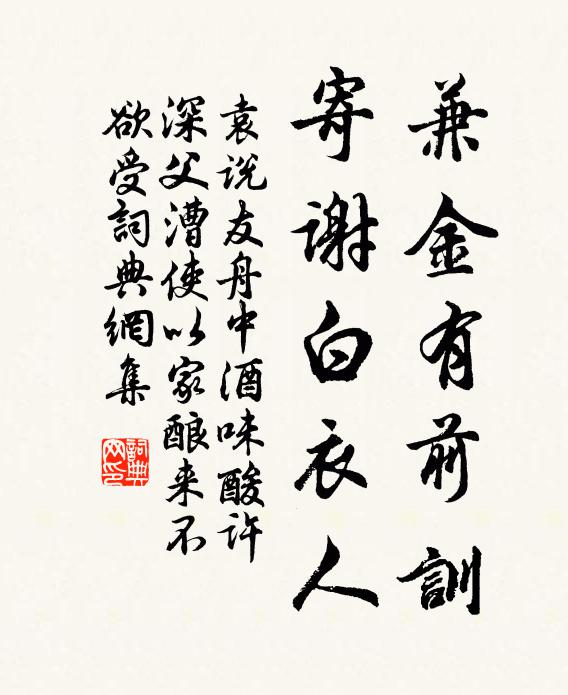 兼金有前訓
寄謝白衣人
袁说友舟中酒味酸许
深父漕使以家酿来不
欲受詞典網集
詞典
网印